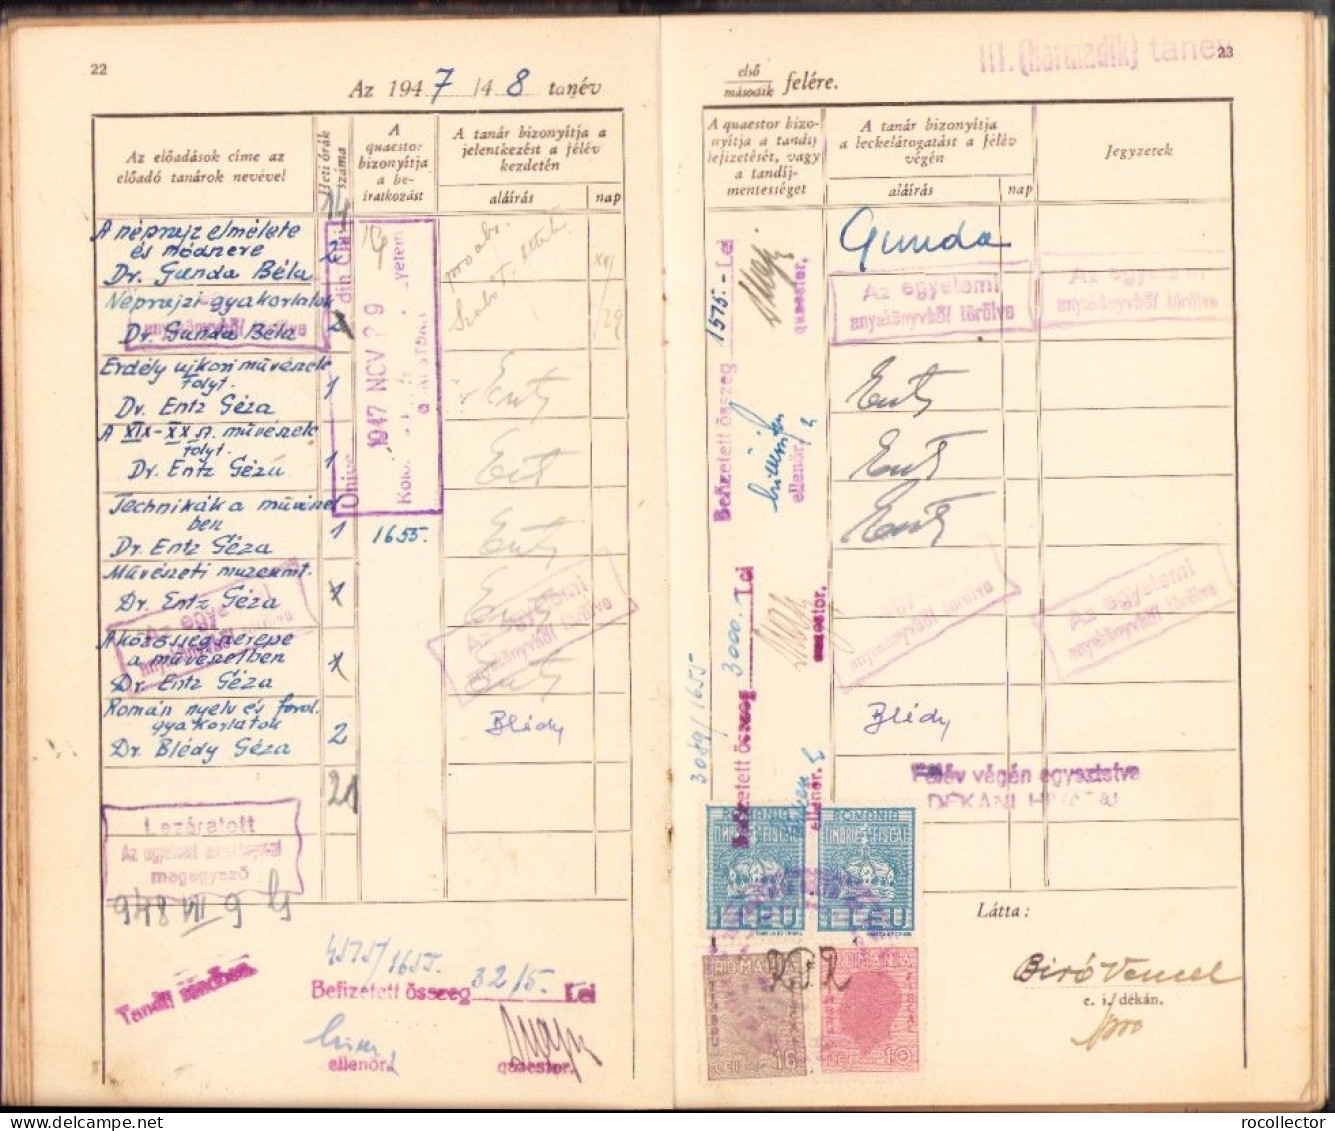 22
Az 1947/48 tanév
Az előadások címe az
előadó tanárok nevével
Heti órák
száma
A
quaestor
bizonyítja
a be-
iratkozást
A tanár bizonyítja a
jelentkezést a félév
kezdetén
aláírás
nap
A néprajz elmélete
és módszere
Dr. Gunda Béla
2
Néprajzi gyakorlatok
Dr. Gunda Béla
2
Erdély ujkori művészete
folyt.
Dr. Entz Géza
1
Entz
A XIX-XX sz. művészete
folyt.
Dr. Entz Géza
1
Entz
Technikák a művészet
ben
Dr. Entz Géza
1
1655.
Entz
Művészeti muzeumt.
Dr. Entz Géza
1
Entz
A közösség szerepe
a művészetben
Dr. Entz Géza
1
Entz
Román nyelv és ford.
gyakorlatok
Dr. Blédy Géza
2
Blédy
21
1947 NOV 29
Az egyetemi
anyakönyvből törölve
Lezáratott
megegyező
948 VIII 9
4575/1655.
Befizetett összeg 3215. Lei
ellenőr.
quaestor.
III. (harmadik) tanév
23
első
második felére.
A quaestor bizo-
nyítja a tandíj
lefizetését, vagy
a tandíj-
mentességet
A tanár bizonyítja
a leckelátogatást a félév
végén
aláírás
nap
Jegyzetek
Gunda
Az egyetemi
anyakönyvből törölve
Az egyetemi
anyakönyvből törölve
Entz
Entz
Entz
Az egyetemi
anyakönyvből törölve
Blédy
Befizetett összeg 1575.- Lei
quaestor.
ellenőr.
Befizetett összeg 3000.- Lei
quaestor.
ellenőr.
3089/1655
Félév végén egyeztetve
DÉKÁNI HIVATAL
ROMANIA
TIMBRU FISCAL
1 LEU
ROMANIA
TIMBRU FISCAL
1 LEU
ROMANIA
LEI 16
ROMANIA
LEI 10
Látta:
Biró Vencel
e. i. dékán.
rocollector